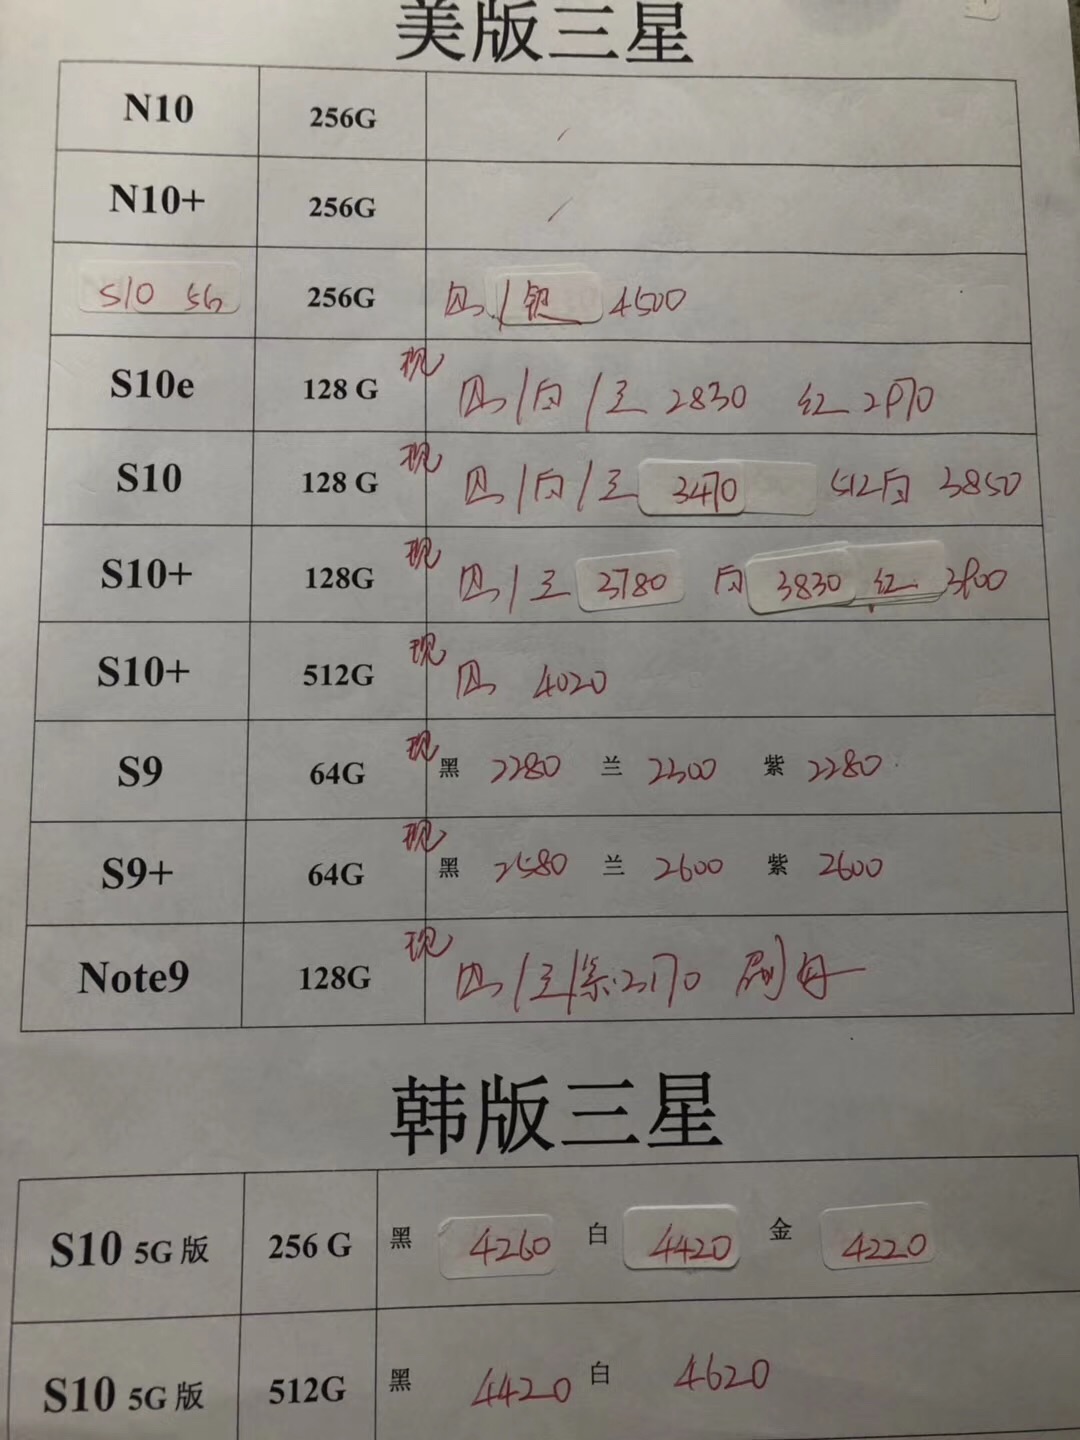 美版三星
N10 256G /
N10+ 256G /
S10 5G 256G 黑/银 4500
S10e 128 G 现 黑/白/兰 2830 红 2970
S10 128 G 现 黑/白/兰 3470 512白 3850
S10+ 128G 现 黑/兰 3780 白 3830 红 3900
S10+ 512G 现 黑 4020
S9 64G 现 黑 2280 兰 2300 紫 2280
S9+ 64G 现 黑 2580 兰 2600 紫 2600
Note9 128G 现 黑/兰/紫 3170
韩版三星
S10 5G 版 256 G 黑 4260 白 4420 金 4220
S10 5G 版 512G 黑 4420 白 4620